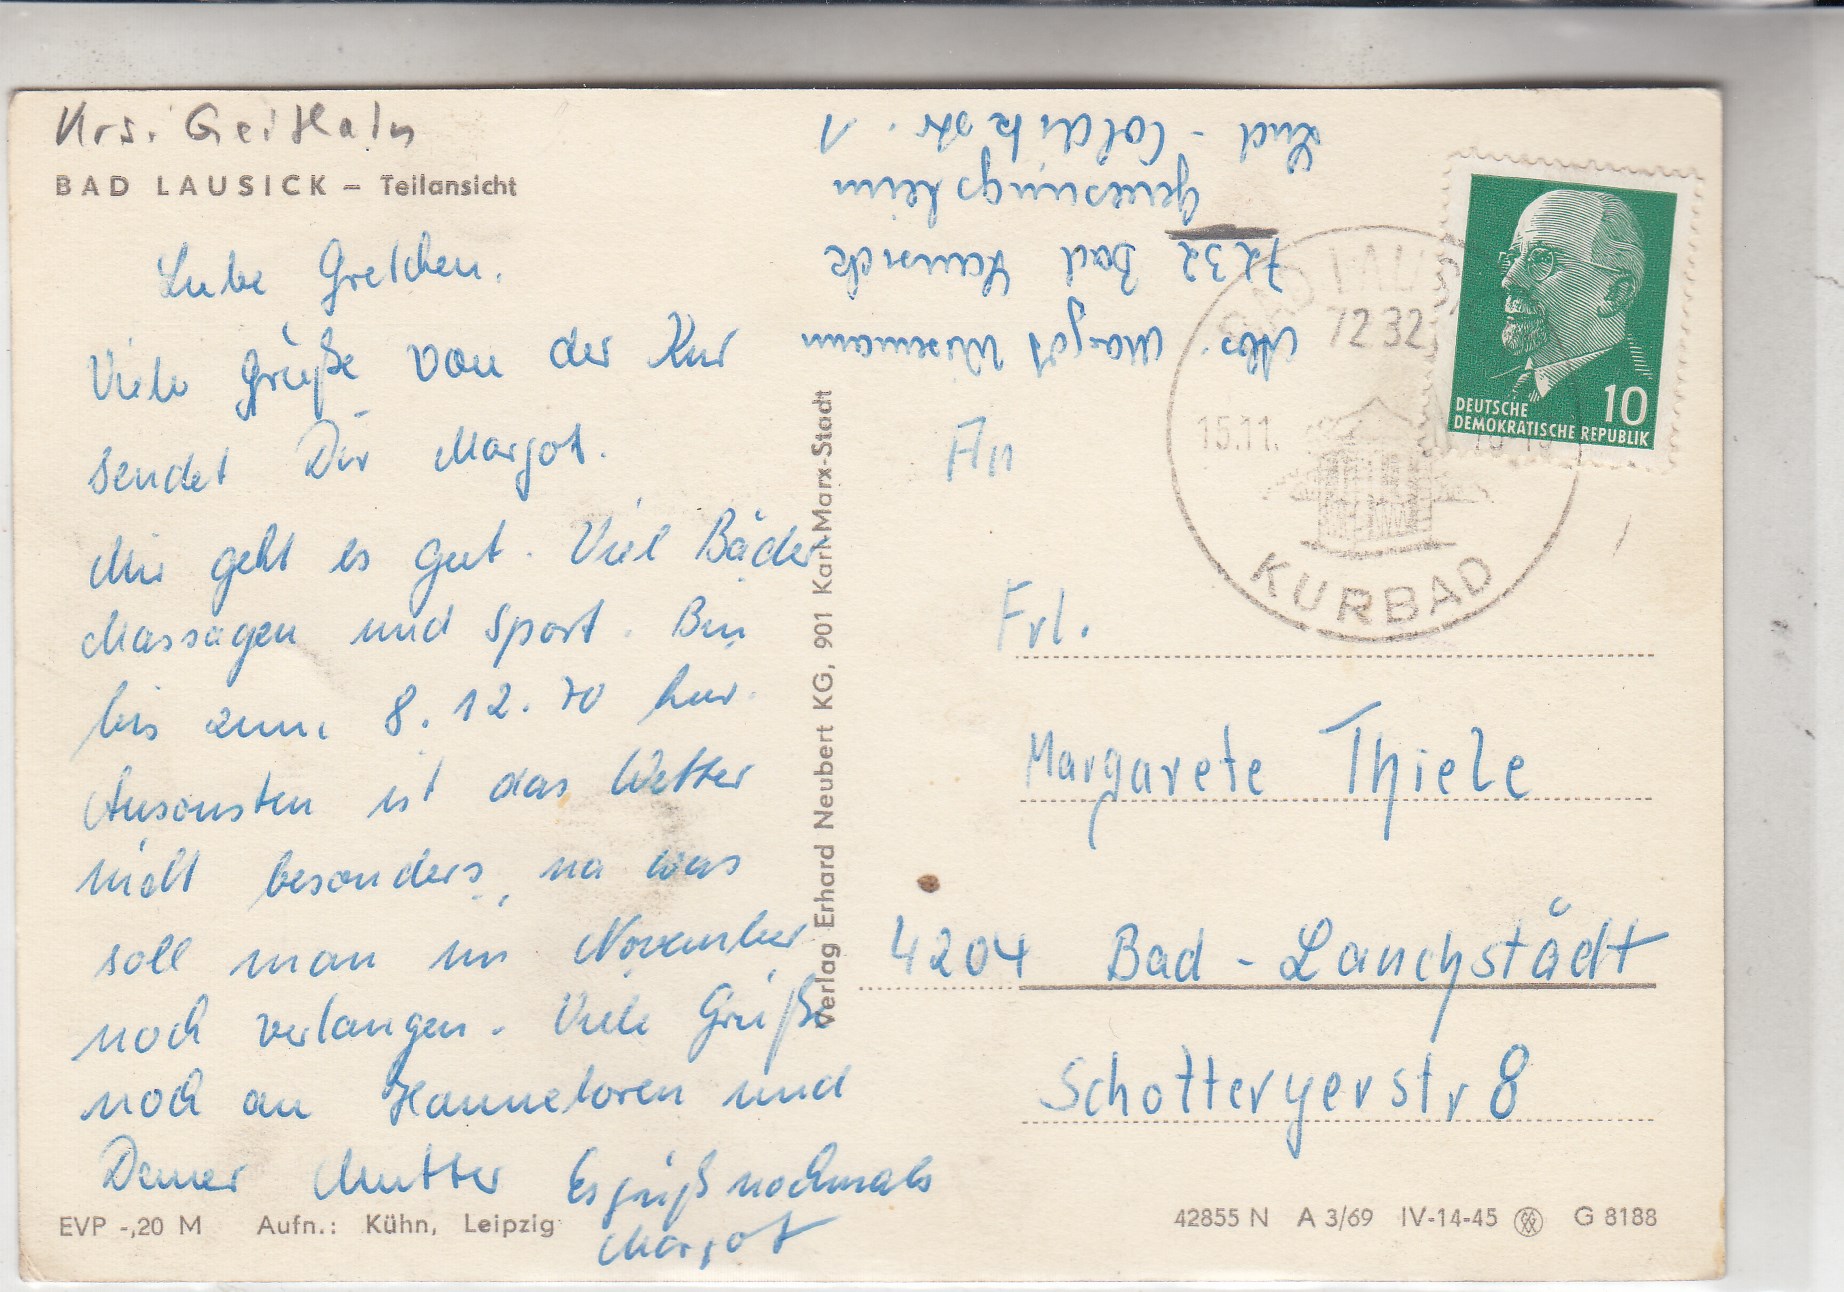 Krs. Geithain
BAD LAUSICK – Teilansicht
Liebe Gretchen.
Viele Grüße von der Kur
sendet Dir Margot.
Mir geht es gut. Viel Bäder
Massagen und Sport. Bin
bis zum 8.12.70 hier.
Ansonsten ist das Wetter
nicht besonders, na was
soll man im November
noch verlangen. Viele Grüße
noch an Hanneloren und
Deiner Mutter Es grüßt nochmals
Margot
EVP -,20 M Aufn.: Kühn, Leipzig
Verlag Erhard Neubert KG, 901 Karl-Marx-Stadt
Abs. Margot Wiesemann
7232 Bad Lausick
Genesungsheim
Colditzstr. 1
BAD LAUS
7232
15.11.
KURBAD
10
DEUTSCHE
DEMOKRATISCHE REPUBLIK
An
Frl.
Margarete Thiele
4204 Bad - Lauchstädt
Schotteryerstr 8
42855 N A 3/69 IV-14-45 G 8188